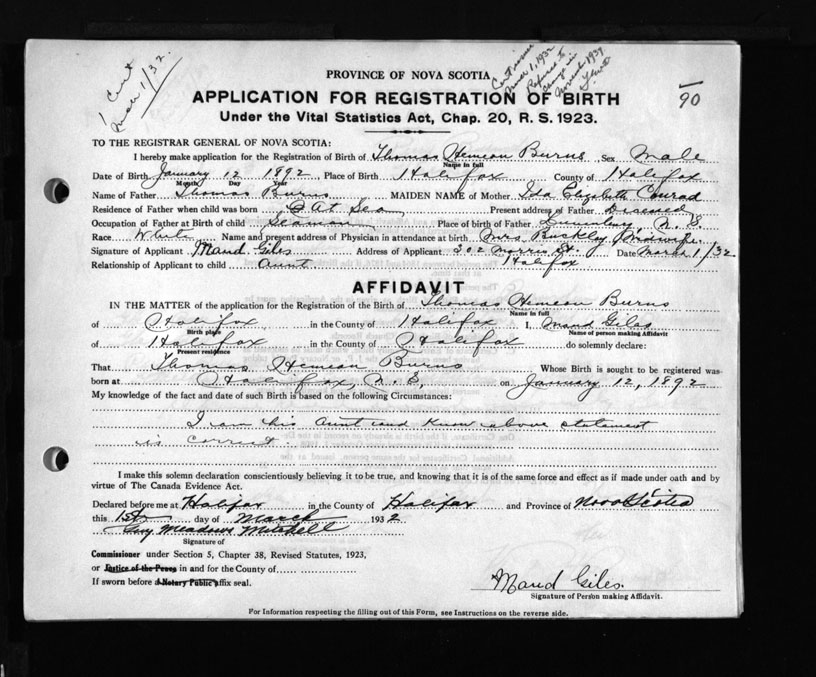 1 Cert
March 1/32.
Cert issued
Mar 1, 1932
PROVINCE OF NOVA SCOTIA
90
APPLICATION FOR REGISTRATION OF BIRTH
Under the Vital Statistics Act, Chap. 20, R. S. 1923.
TO THE REGISTRAR GENERAL OF NOVA SCOTIA:
I hereby make application for the Registration of Birth of Thomas Hemeon Burns Sex Male
Name in full
Date of Birth January 12 1892 Place of Birth Halifax County of Halifax
Month Day Year
Name of Father Thomas Burns MAIDEN NAME of Mother Ida Elizabeth Conrad
Residence of Father when child was born At Sea Present address of Father Deceased
Occupation of Father at Birth of child Seaman Place of birth of Father N. S.
Race White Name and present address of Physician in attendance at birth Mrs Buckley, Midwife.
Signature of Applicant Maud Giles Address of Applicant 302 Morris St. Date March 1/32
Relationship of Applicant to child Aunt Halifax
AFFIDAVIT
IN THE MATTER of the application for the Registration of the Birth of Thomas Hemeon Burns
Name in full
of Halifax in the County of Halifax I, Maud Giles
Birth place Name of person making Affidavit
of Halifax in the County of Halifax do solemnly declare:
Present residence
That Thomas Hemeon Burns Whose Birth is sought to be registered was
born at Halifax, N. S, on January 12, 1892
My knowledge of the fact and date of such Birth is based on the following Circumstances:
I am his Aunt and know above statement
is correct.
I make this solemn declaration conscientiously believing it to be true, and knowing that it is of the same force and effect as if made under oath and by
virtue of The Canada Evidence Act.
Declared before me at Halifax in the County of Halifax and Province of Nova Scotia
this 1st day of March 1932
Guy Meadows Mitchell
Signature of
Commissioner under Section 5, Chapter 38, Revised Statutes, 1923,
or Justice of the Peace in and for the County of
If sworn before a Notary Public affix seal.
Maud Giles.
Signature of Person making Affidavit.
For Information respecting the filling out of this Form, see Instructions on the reverse side.